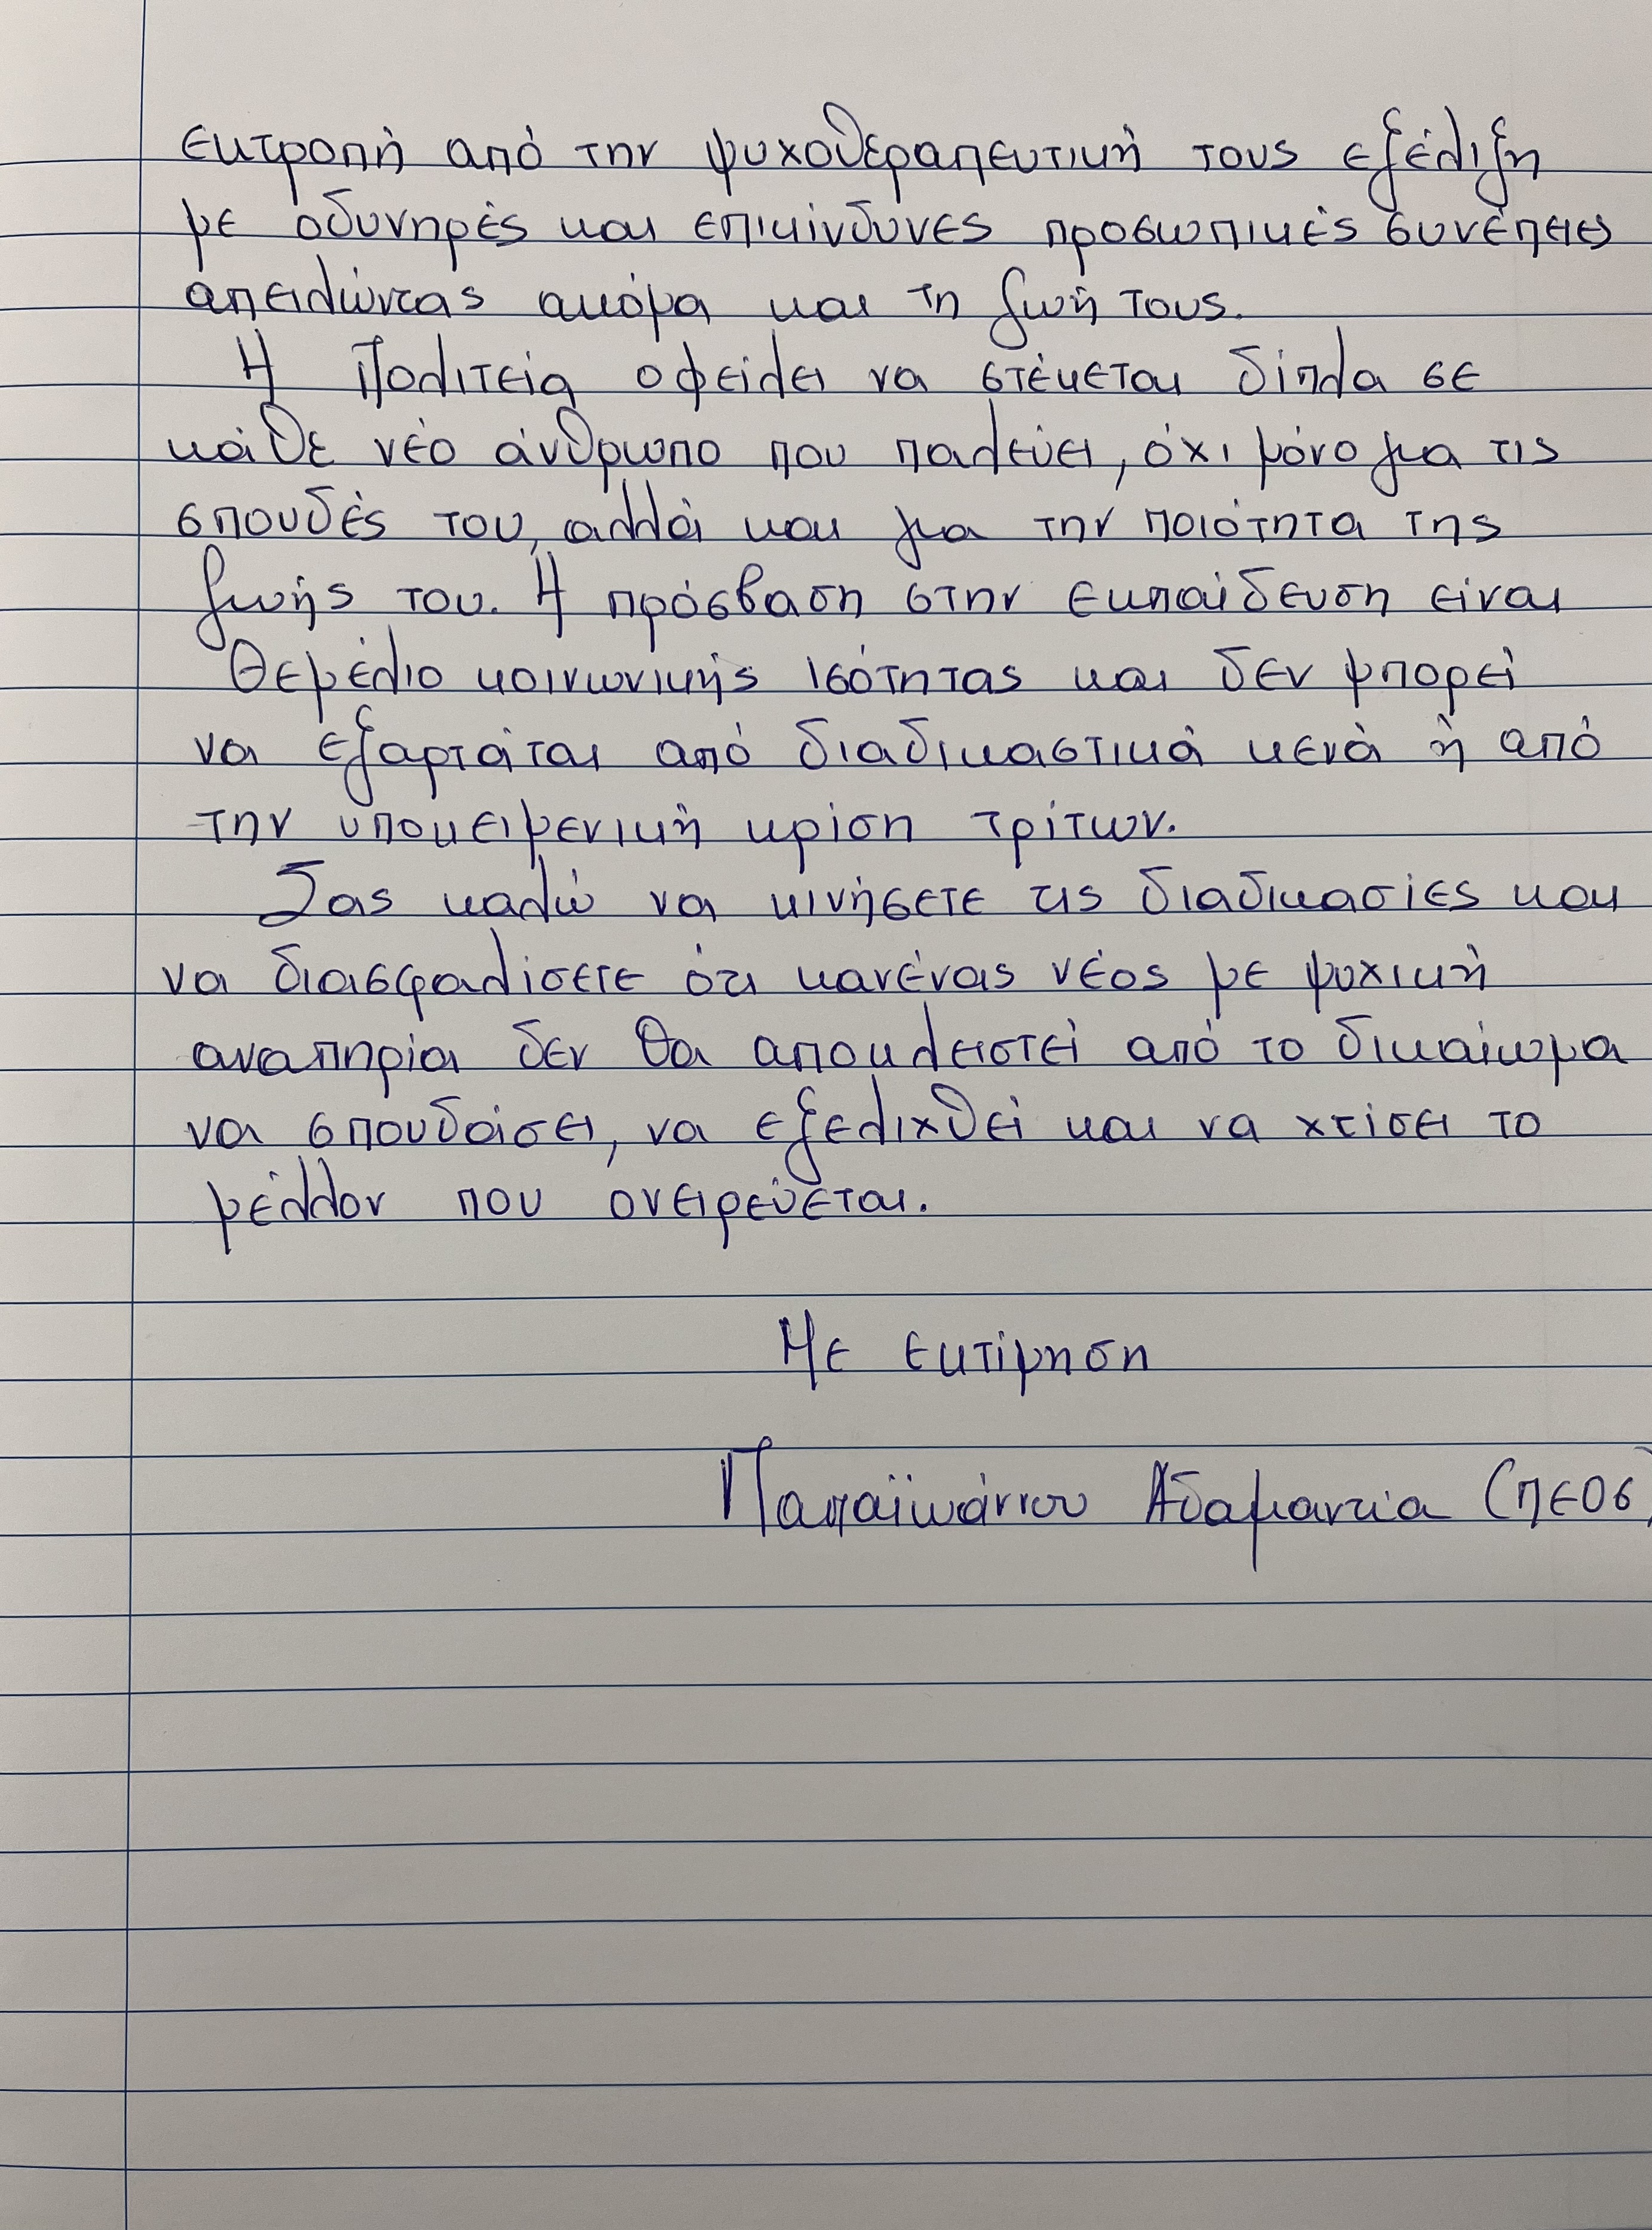 εκτροπή από την ψυχοθεραπευτική τους εξέλιξη
με οδυνηρές και επικίνδυνες προσωπικές συνέπειες
απειλώντας ακόμα και τη ζωή τους.
Η Πολιτεία οφείλει να στέκεται δίπλα σε
κάθε νέο άνθρωπο που παλεύει, όχι μόνο για τις
σπουδές του, αλλά και για την ποιότητα της
ζωής του. Η πρόσβαση στην εκπαίδευση είναι
θεμέλιο κοινωνικής ισότητας και δεν μπορεί
να εξαρτάται από διαδικαστικά κενά ή από
την υποκειμενική κρίση τρίτων.
Σας καλώ να κινήσετε τις διαδικασίες και
να διασφαλίσετε ότι κανένας νέος με ψυχική
αναπηρία δεν θα αποκλειστεί από το δικαίωμα
να σπουδάσει, να εξελιχθεί και να χτίσει το
μέλλον που ονειρεύεται.
Με εκτίμηση
Παπαϊωάννου Αδαμαντία (ΠΕ06)